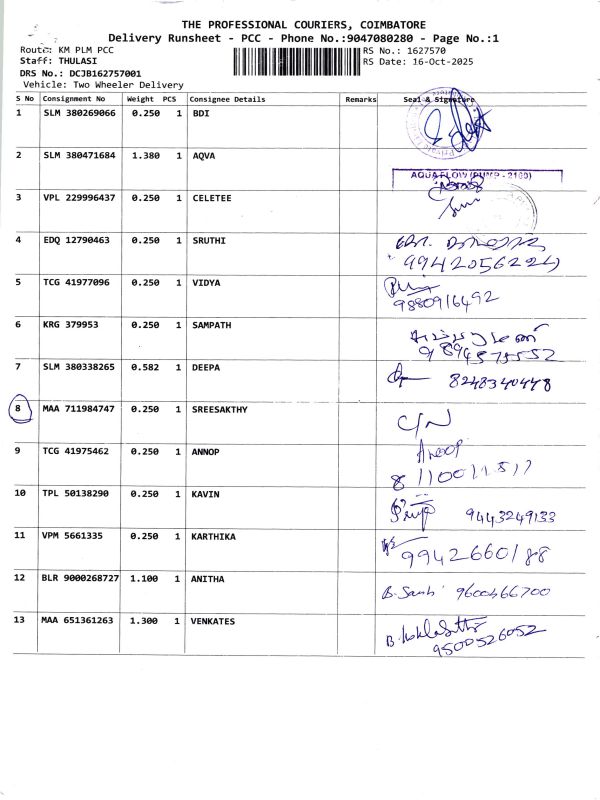 THE PROFESSIONAL COURIERS, COIMBATORE
Delivery Runsheet - PCC - Phone No.:9047080280 - Page No.:1
Route: KM PLM PCC
RS No.: 1627570
Staff: THULASI
RS Date: 16-Oct-2025
DRS No.: DCJB162757001
Vehicle: Two Wheeler Delivery
S No Consignment No Weight PCS Consignee Details Remarks Seal & Signature
1 SLM 380269066 0.250 1 BDI
2 SLM 380471684 1.380 1 AQVA
AQUA FLOW (PUMP - 2160)
3 VPL 229996437 0.250 1 CELETEE
4 EDQ 12790463 0.250 1 SRUTHI
5 TCG 41977096 0.250 1 VIDYA
9880916492
6 KRG 379953 0.250 1 SAMPATH
7 SLM 380338265 0.582 1 DEEPA 8248340448
8 MAA 711984747 0.250 1 SREESAKTHY C/N
9 TCG 41975462 0.250 1 ANNOP Anoop
10 TPL 50138290 0.250 1 KAVIN 9443249133
11 VPM 5661335 0.250 1 KARTHIKA 9942660188
12 BLR 9000268727 1.100 1 ANITHA 9600466700
13 MAA 651361263 1.300 1 VENKATES
9500526052